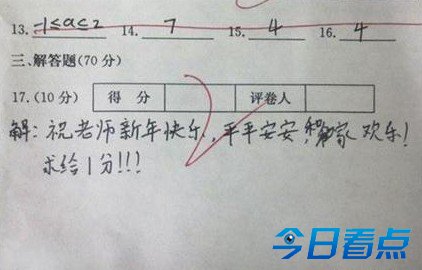 13. -1≤a≤2 14. 7 15. 4 16. 4
三、解答题(70分)
17.(10分) 得 分 评卷人
解:祝老师新年快乐,平平安安,家欢乐!
求给1分!!!
今日看点